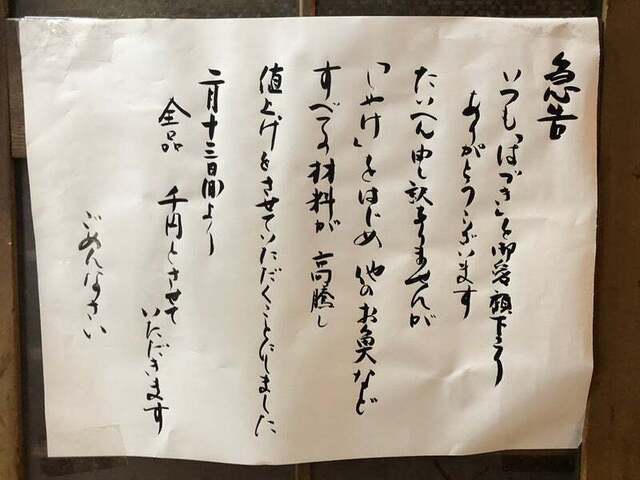 急告
いつも「はづき」を御愛顧下さり
ありがとうございます
たいへん申し訳ありませんが
「しゃけ」をはじめ 他のお魚など
すべての材料が 高騰し
値上げをさせていただくことにしました
二月十三日(月)より
全品 千円とさせて
いただきます
ごめんなさい